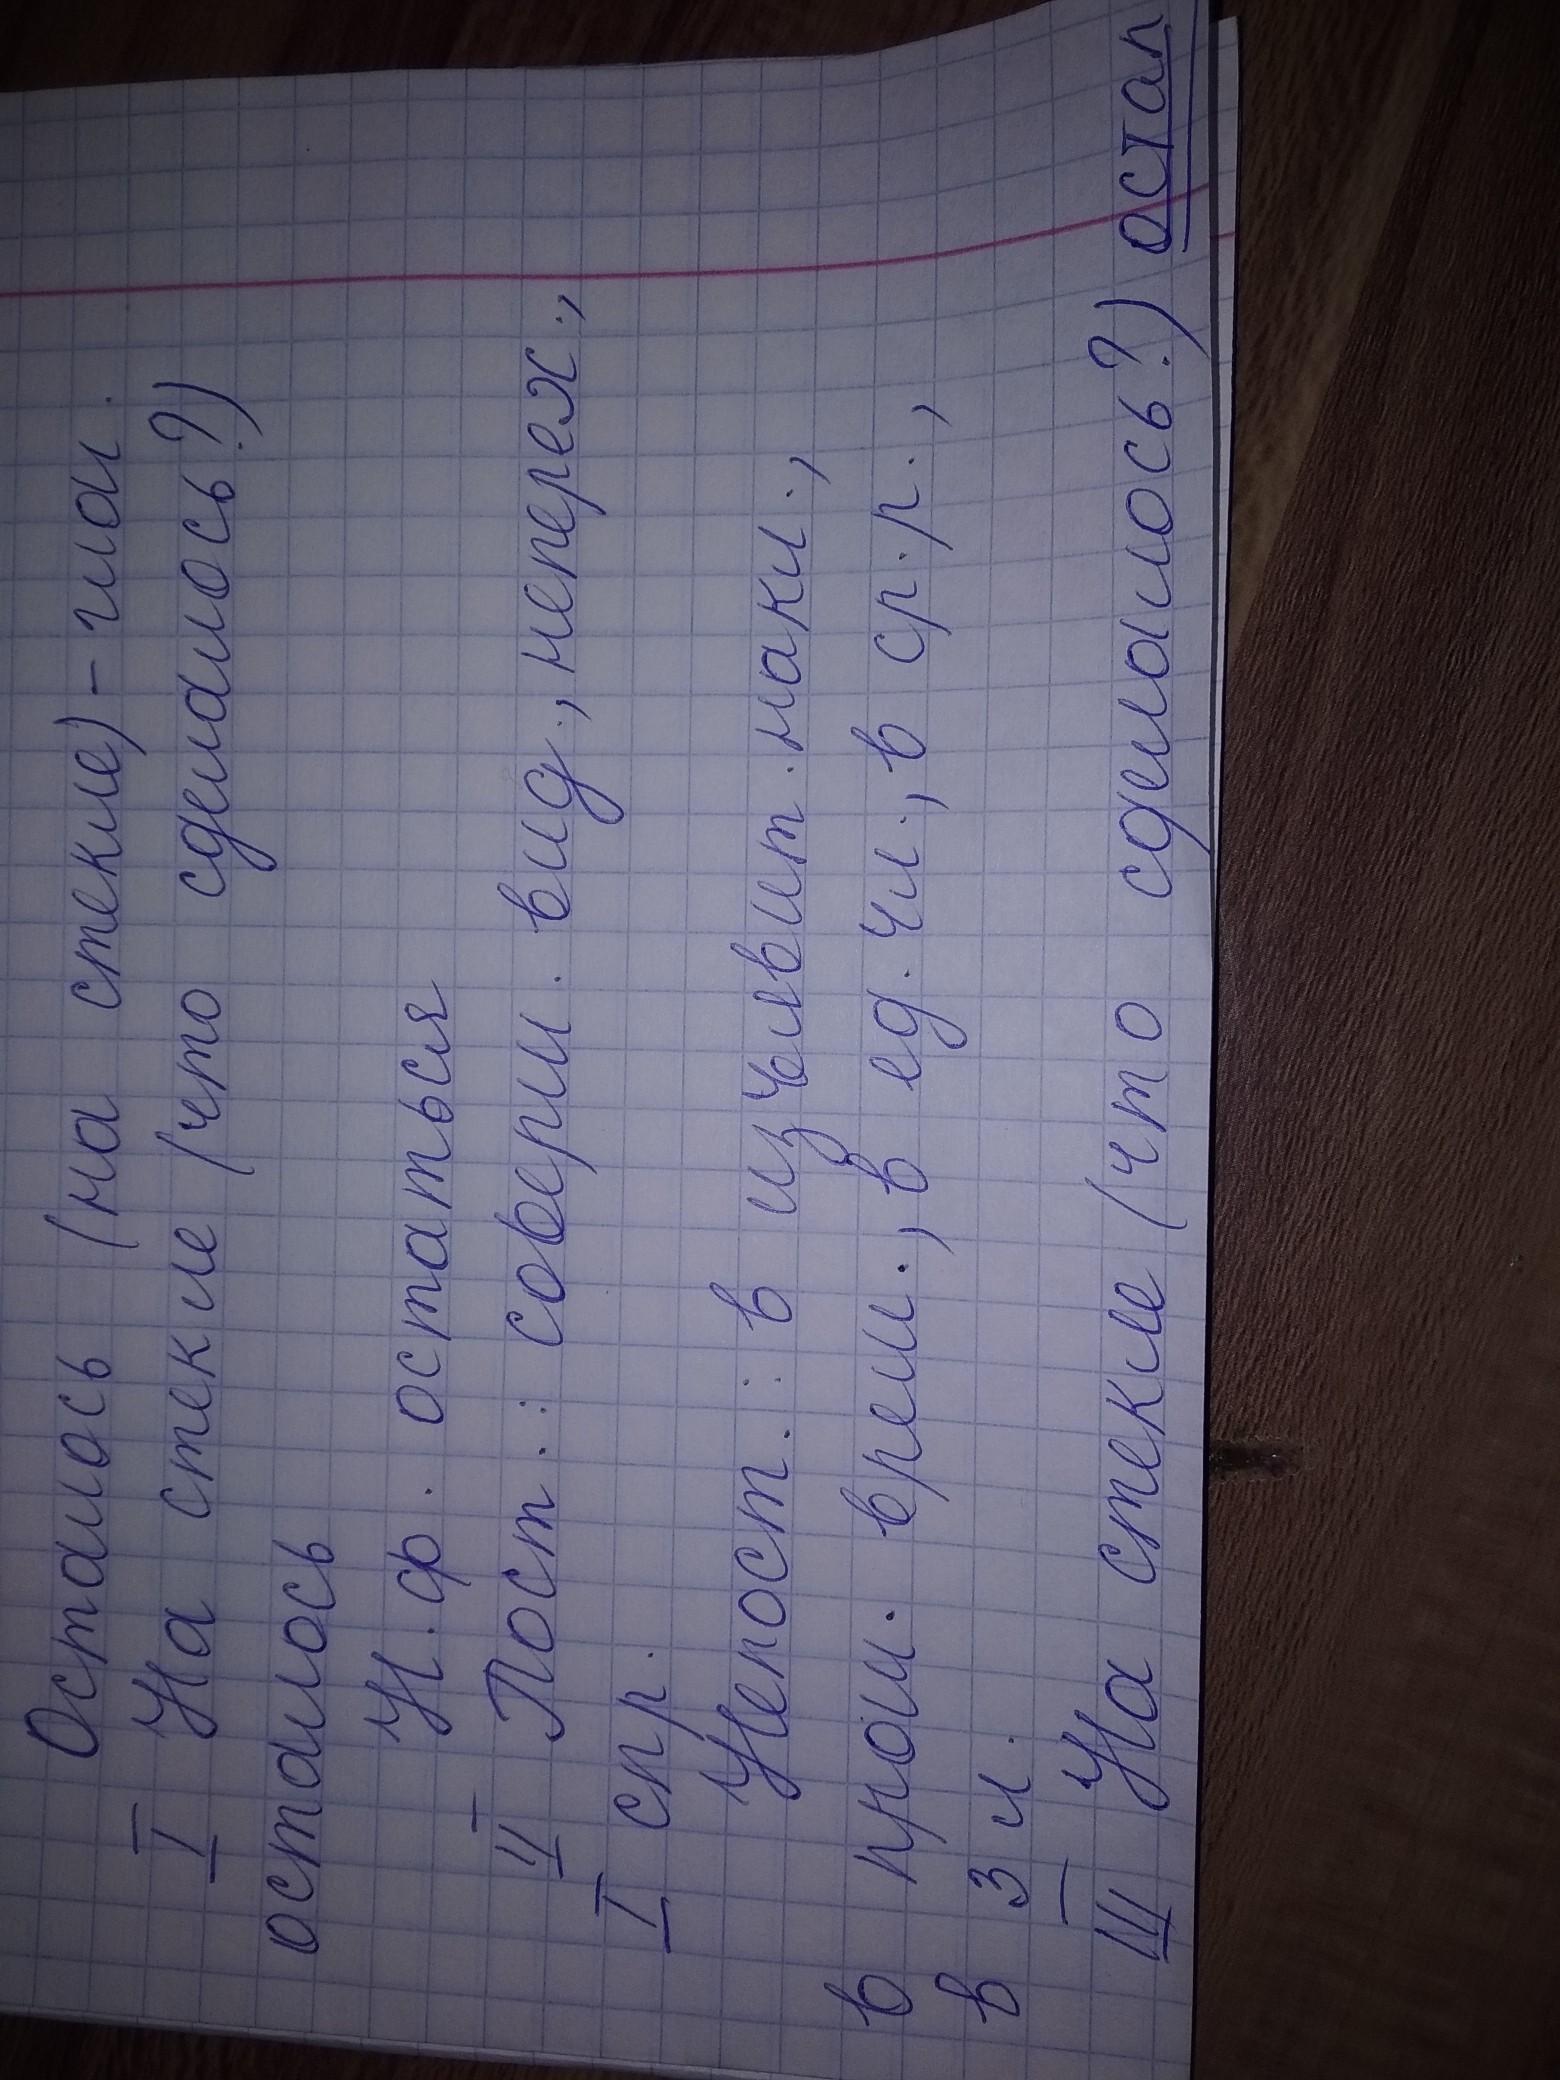 Осталось (на стекле) - глаг.
I На стекле (что сделалось?)
осталось
Н.ф. остаться
II Пост.: соверш. вид., неперех.,
I спр.
Непост.: в изъявит. накл.,
в прош. врем., в ед. чл., в ср.р.,
в 3 л.
III На стекле (что сделалось?) остал